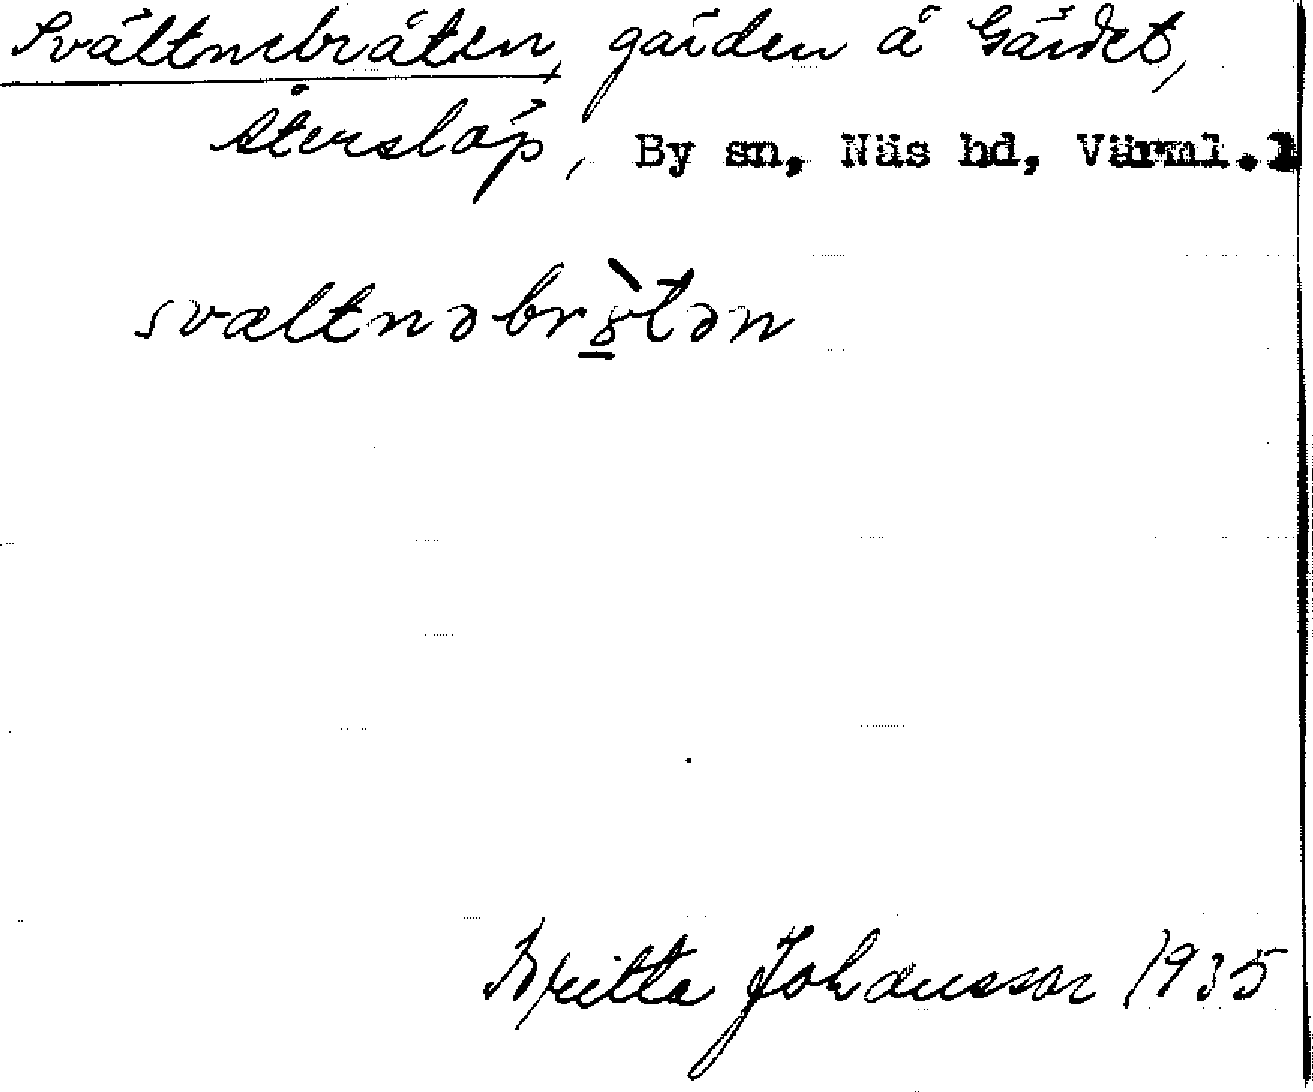 Svältnebråten, gården å Gärdet,
Återslöp, By sn, Näs hd, Värml.l
svæltnəbr8̲̀tən
Britta Johansson 1935